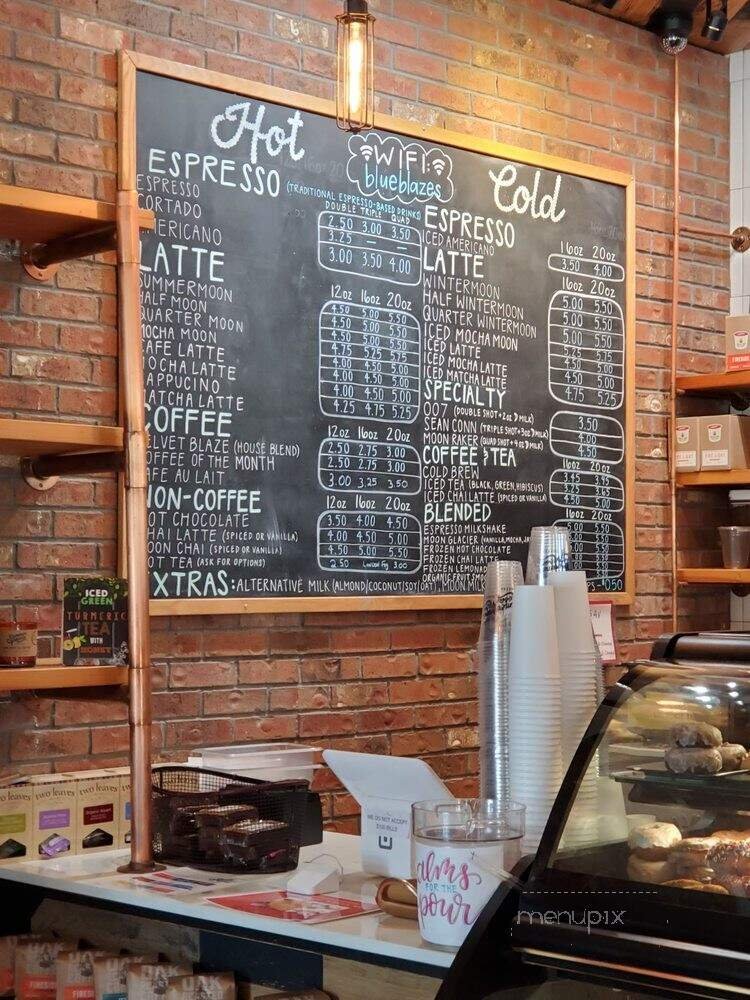 Hot
WIFI:
blueblazes
Cold
ESPRESSO
(TRADITIONAL ESPRESSO-BASED DRINKS)
DOUBLE TRIPLE QUAD
ESPRESSO 2.50 3.00 3.50
CORTADO 3.25 — —
MERICANO 3.00 3.50 4.00
LATTE
12oz 16oz 20oz
SUMMERMOON 4.50 5.00 5.50
HALF MOON 4.50 5.00 5.50
QUARTER MOON 4.50 5.00 5.50
MOCHA MOON 4.75 5.25 5.75
CAFE LATTE 4.00 4.50 5.00
MOCHA LATTE
CAPPUCINO 4.00 4.50 5.00
MATCHA LATTE 4.25 4.75 5.25
COFFEE
12oz 16oz 20oz
VELVET BLAZE (HOUSE BLEND) 2.50 2.75 3.00
COFFEE OF THE MONTH 2.50 2.75 3.00
CAFE AU LAIT 3.00 3.25 3.50
NON-COFFEE
12oz 16oz 20oz
HOT CHOCOLATE 3.50 4.00 4.50
CHAI LATTE (SPICED OR VANILLA) 4.00 4.50 5.00
MOON CHAI (SPICED OR VANILLA) 4.50 5.00 5.50
HOT TEA (ASK FOR OPTIONS) 2.50 3.00
EXTRAS: ALTERNATIVE MILK (ALMOND/COCONUT/SOY/OAT), MOON MILK
0.50
ESPRESSO
16oz 20oz
ICED AMERICANO 3.50 4.00
LATTE
16oz 20oz
WINTERMOON 5.00 5.50
HALF WINTERMOON 5.00 5.50
QUARTER WINTERMOON 5.00 5.50
ICED MOCHA MOON 5.25 5.75
ICED LATTE 4.50 5.00
ICED MOCHA LATTE
ICED MATCHA LATTE 4.75 5.25
SPECIALTY
007 (DOUBLE SHOT+2oz MILK) 3.50
SEAN CONN (TRIPLE SHOT+3oz MILK) 4.00
MOON RAKER (QUAD SHOT+4oz MILK) 4.50
COFFEE & TEA
16oz 20oz
COLD BREW 3.45 3.95
ICED TEA (BLACK, GREEN, HIBISCUS)
ICED CHAI LATTE (SPICED OR VANILLA) 4.50 5.00
BLENDED
16oz 20oz
ESPRESSO MILKSHAKE 5.00 5.50
MOON GLACIER (VANILLA, MOCHA, JA
FROZEN HOT CHOCOLATE
FROZEN CHAI LATTE
FROZEN LEMONAD
ORGANIC FRUIT SMOO
ICED
GREEN
TURMERIC
TEA
WITH
HONEY
two leaves
two leaves
two leaves
WE DO NOT ACCEPT
$100 BILLS
alms
FOR THE
pour
OAK
OAK
menupix